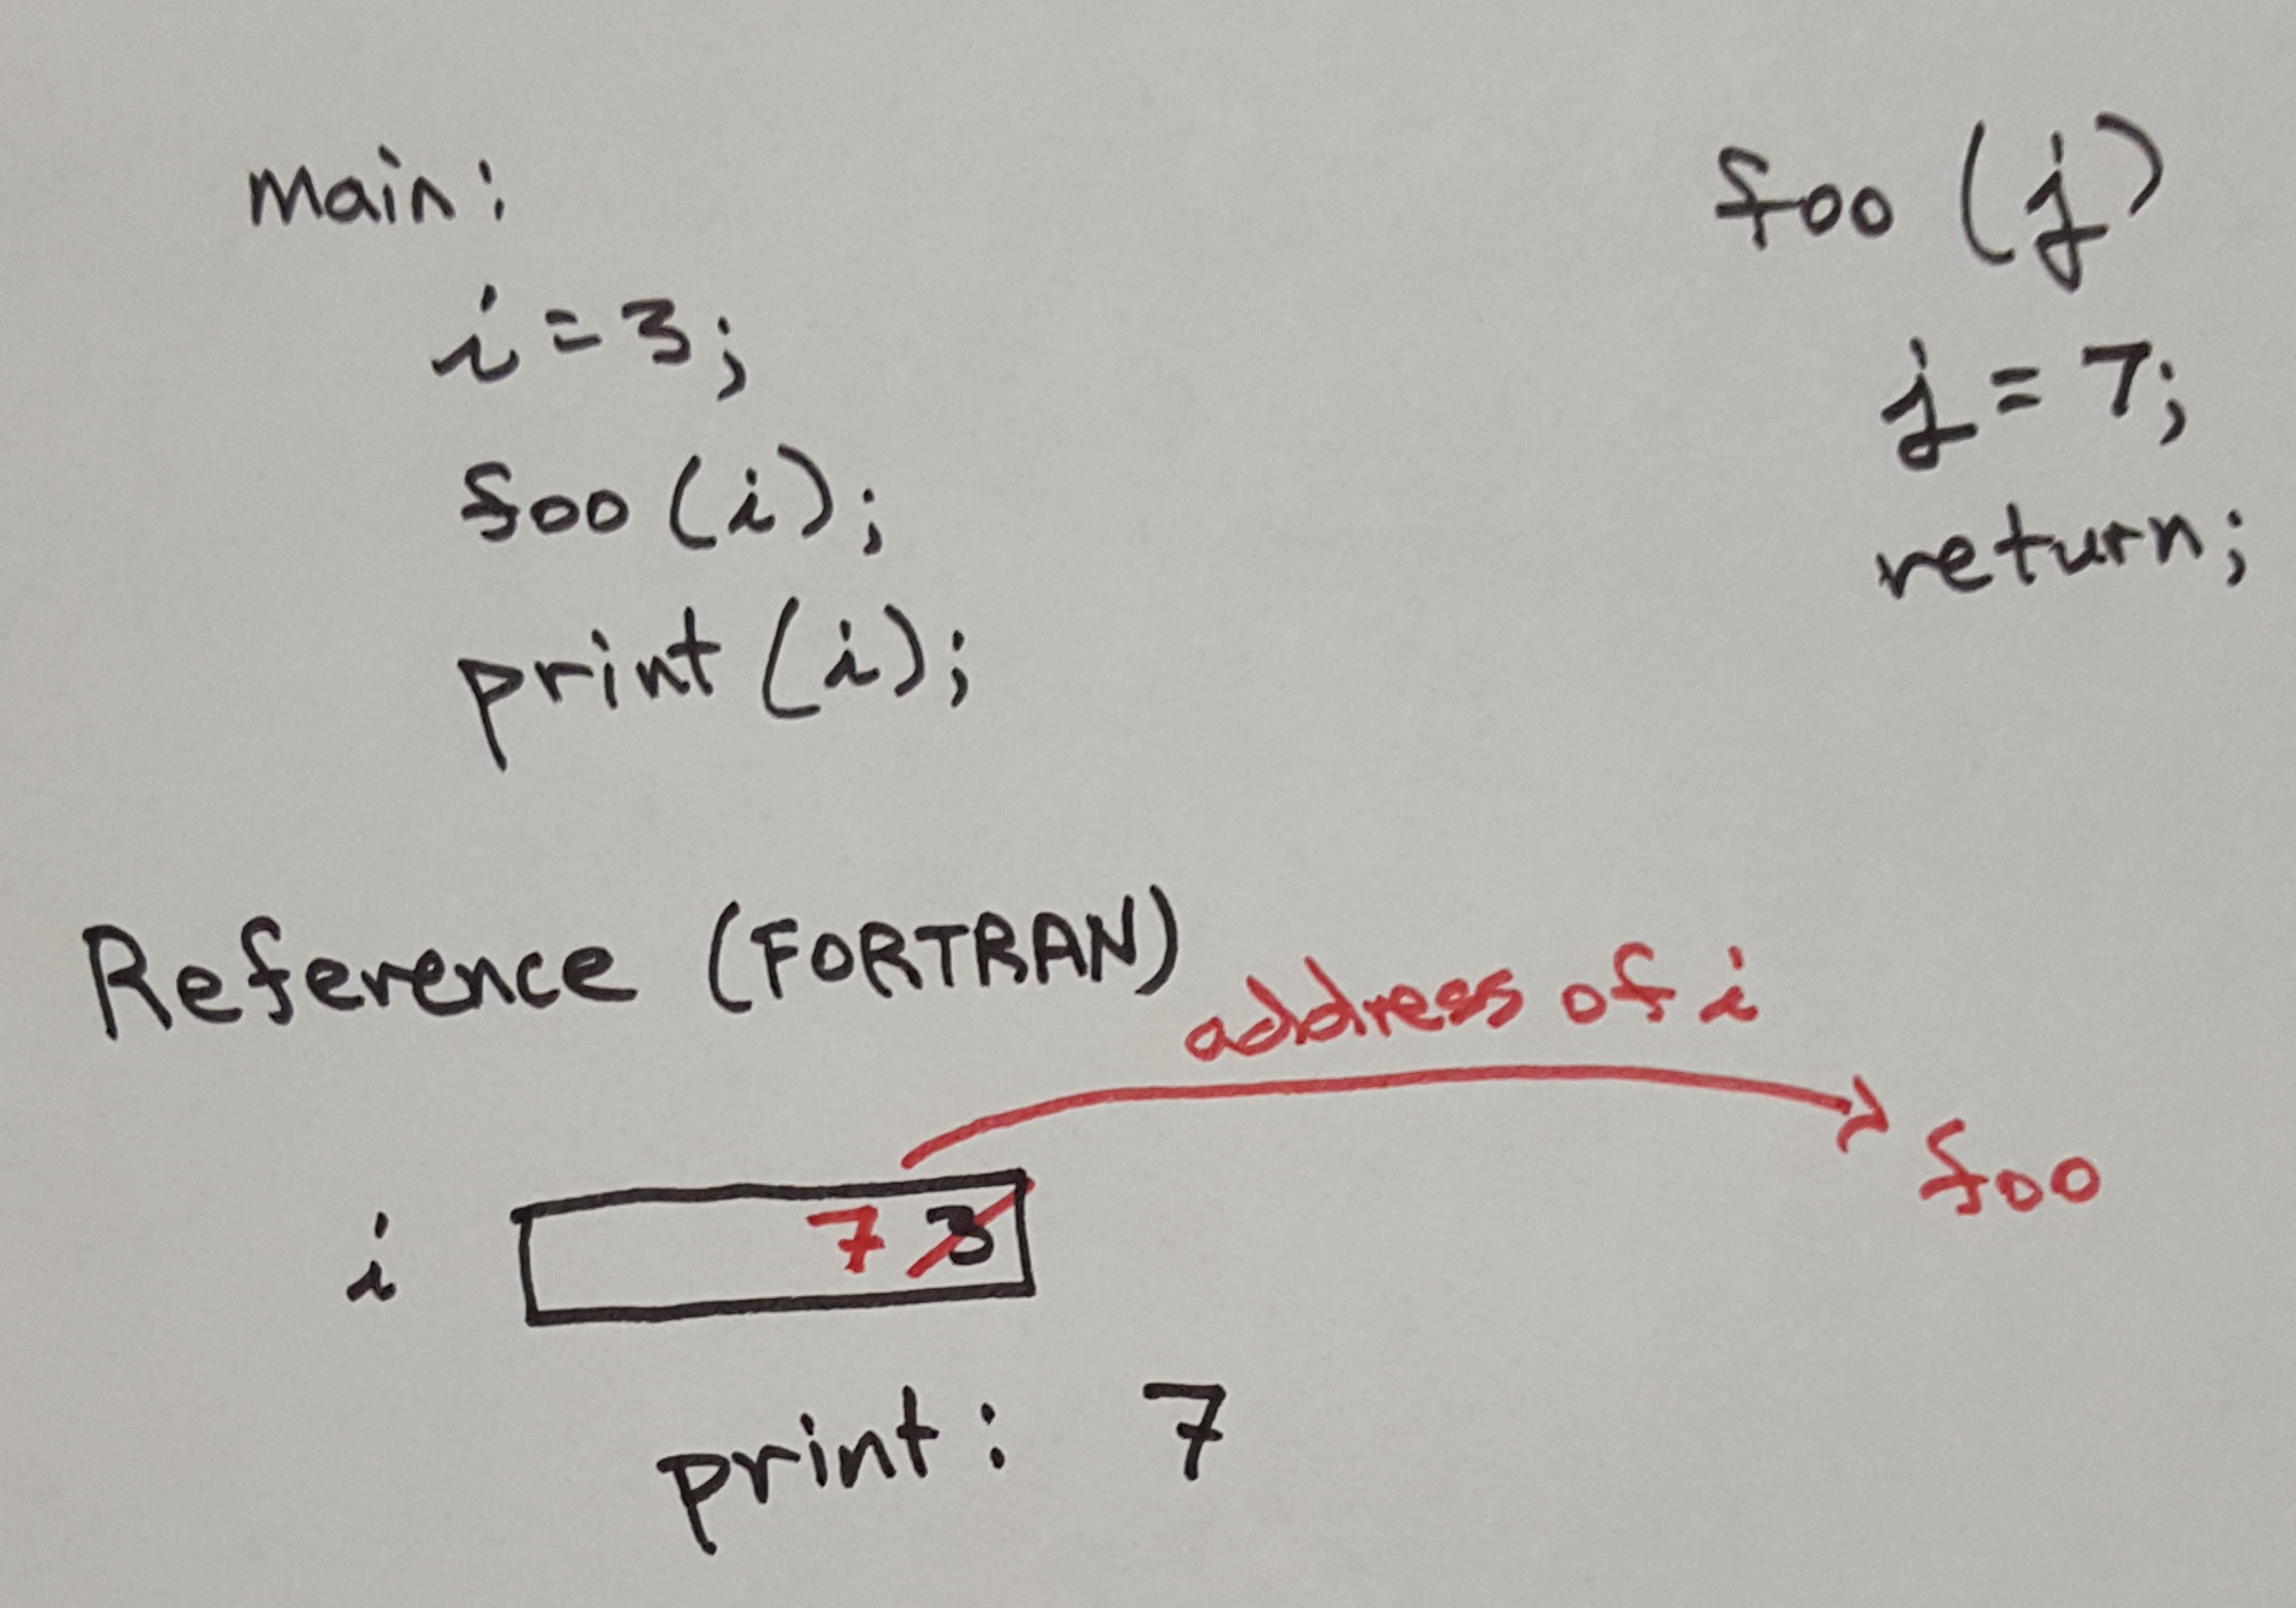 main:
i = 3;
foo (i);
print (i);
foo (j)
j = 7;
return;
Reference (FORTRAN)
address of i
foo
i 7 3
print: 7